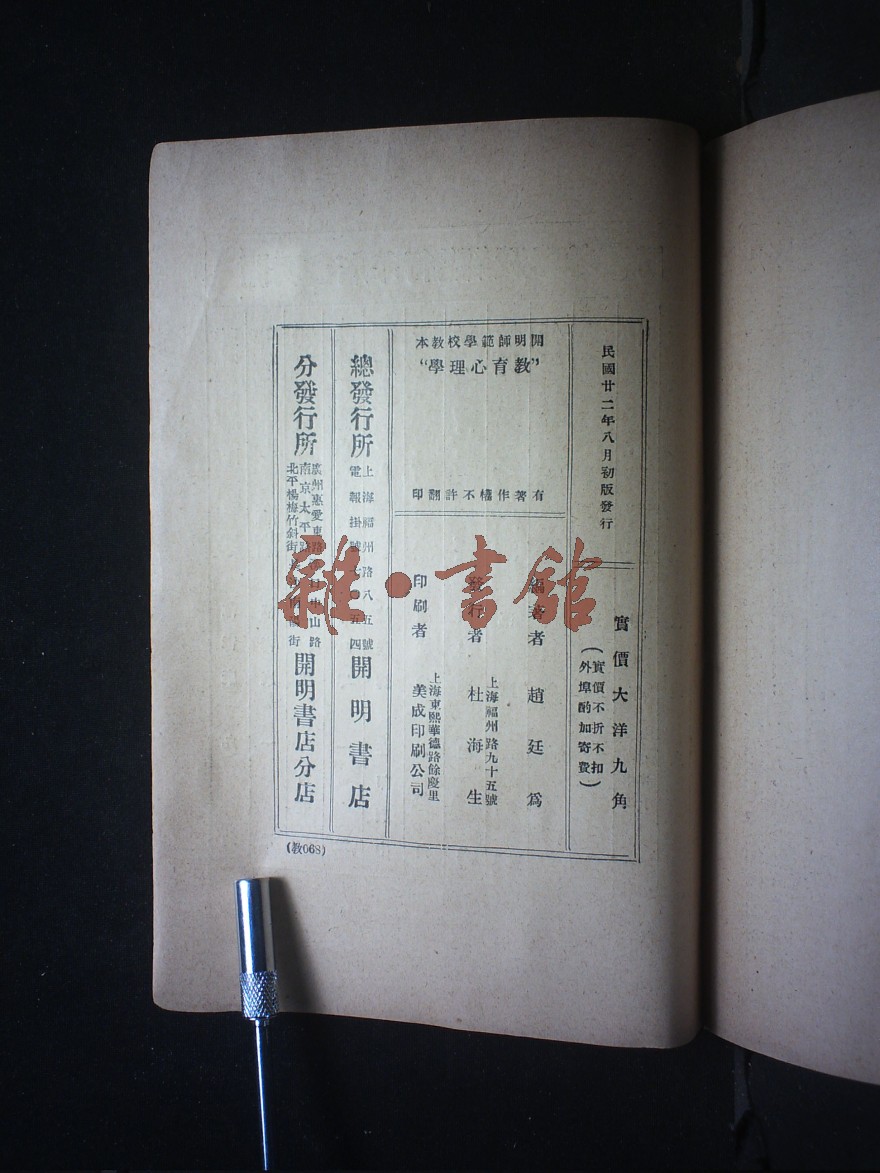 民國廿二年八月初版發行
實價大洋九角
(實價不折不扣
外埠酌加寄費)
開明師範學校教本
“教育心理學”
有著作權不許翻印
編著者 趙廷爲
發行者 杜海生
上海福州路九十五號
印刷者 美成印刷公司
上海東熙華德路餘慶里
總發行所
上海福州路八五號
電報掛號七〇五四
開明書店
分發行所
廣州惠愛東路
南京太平路 山路
北平楊梅竹斜街 街
開明書店分店
(教068)
雜·書館